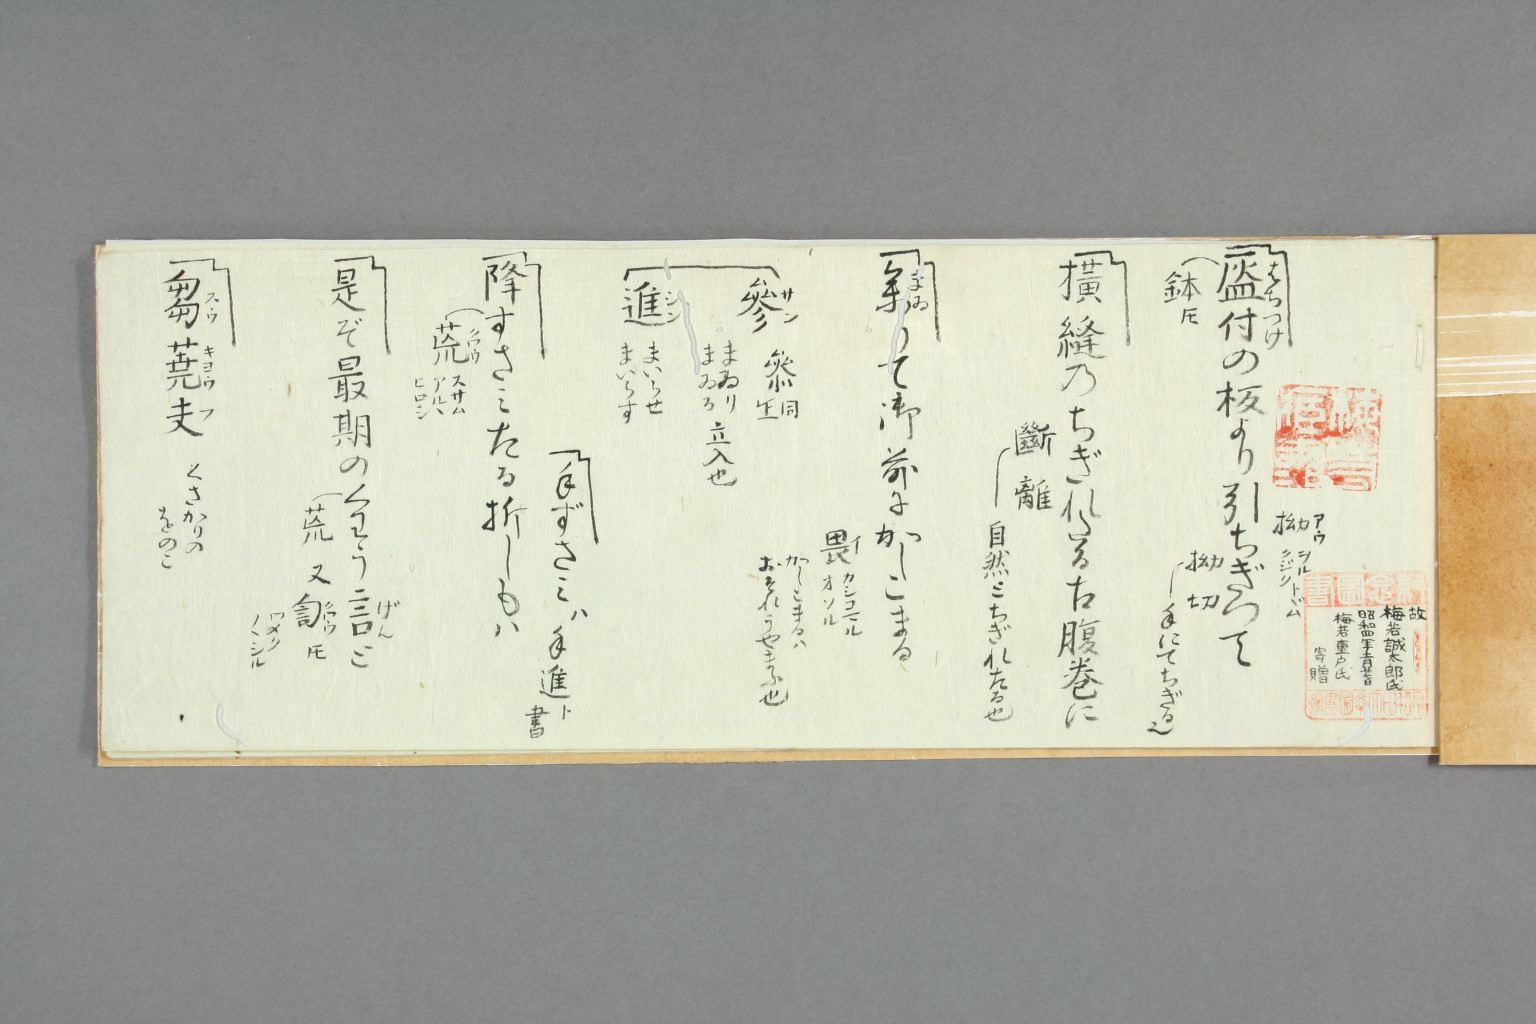 はちつけ
盔付の板より引ちぎつて
鉢 㐧
拗 アウ シル トガム クジク
拗切
手にてちぎる也
故
梅若誠太郎氏
梅若重戸氏
寄贈
横縫乃ちぎれたる古腹巻に
斷離
自然とちぎれたる也
まゐ
參りて御前にかしこまる
畏 イ カシコマル オソル
かしこまるハ
おそれうやまふ也
參 サン
叅 同 㐧
まゐり
まゐる 立入也
進 シン
まいらせ
まいらす
手ずさミハ手進ト書
降すさミたる折しもハ
荒 クワウ スサム アルハ ヒロシ
是ぞ最期のくわう言と
げん
荒 又 訇 クワウ 㐧
ワメク
ノヽシル
芻蕘夫
スウ キヨウ フ
くさかりの
をのこ